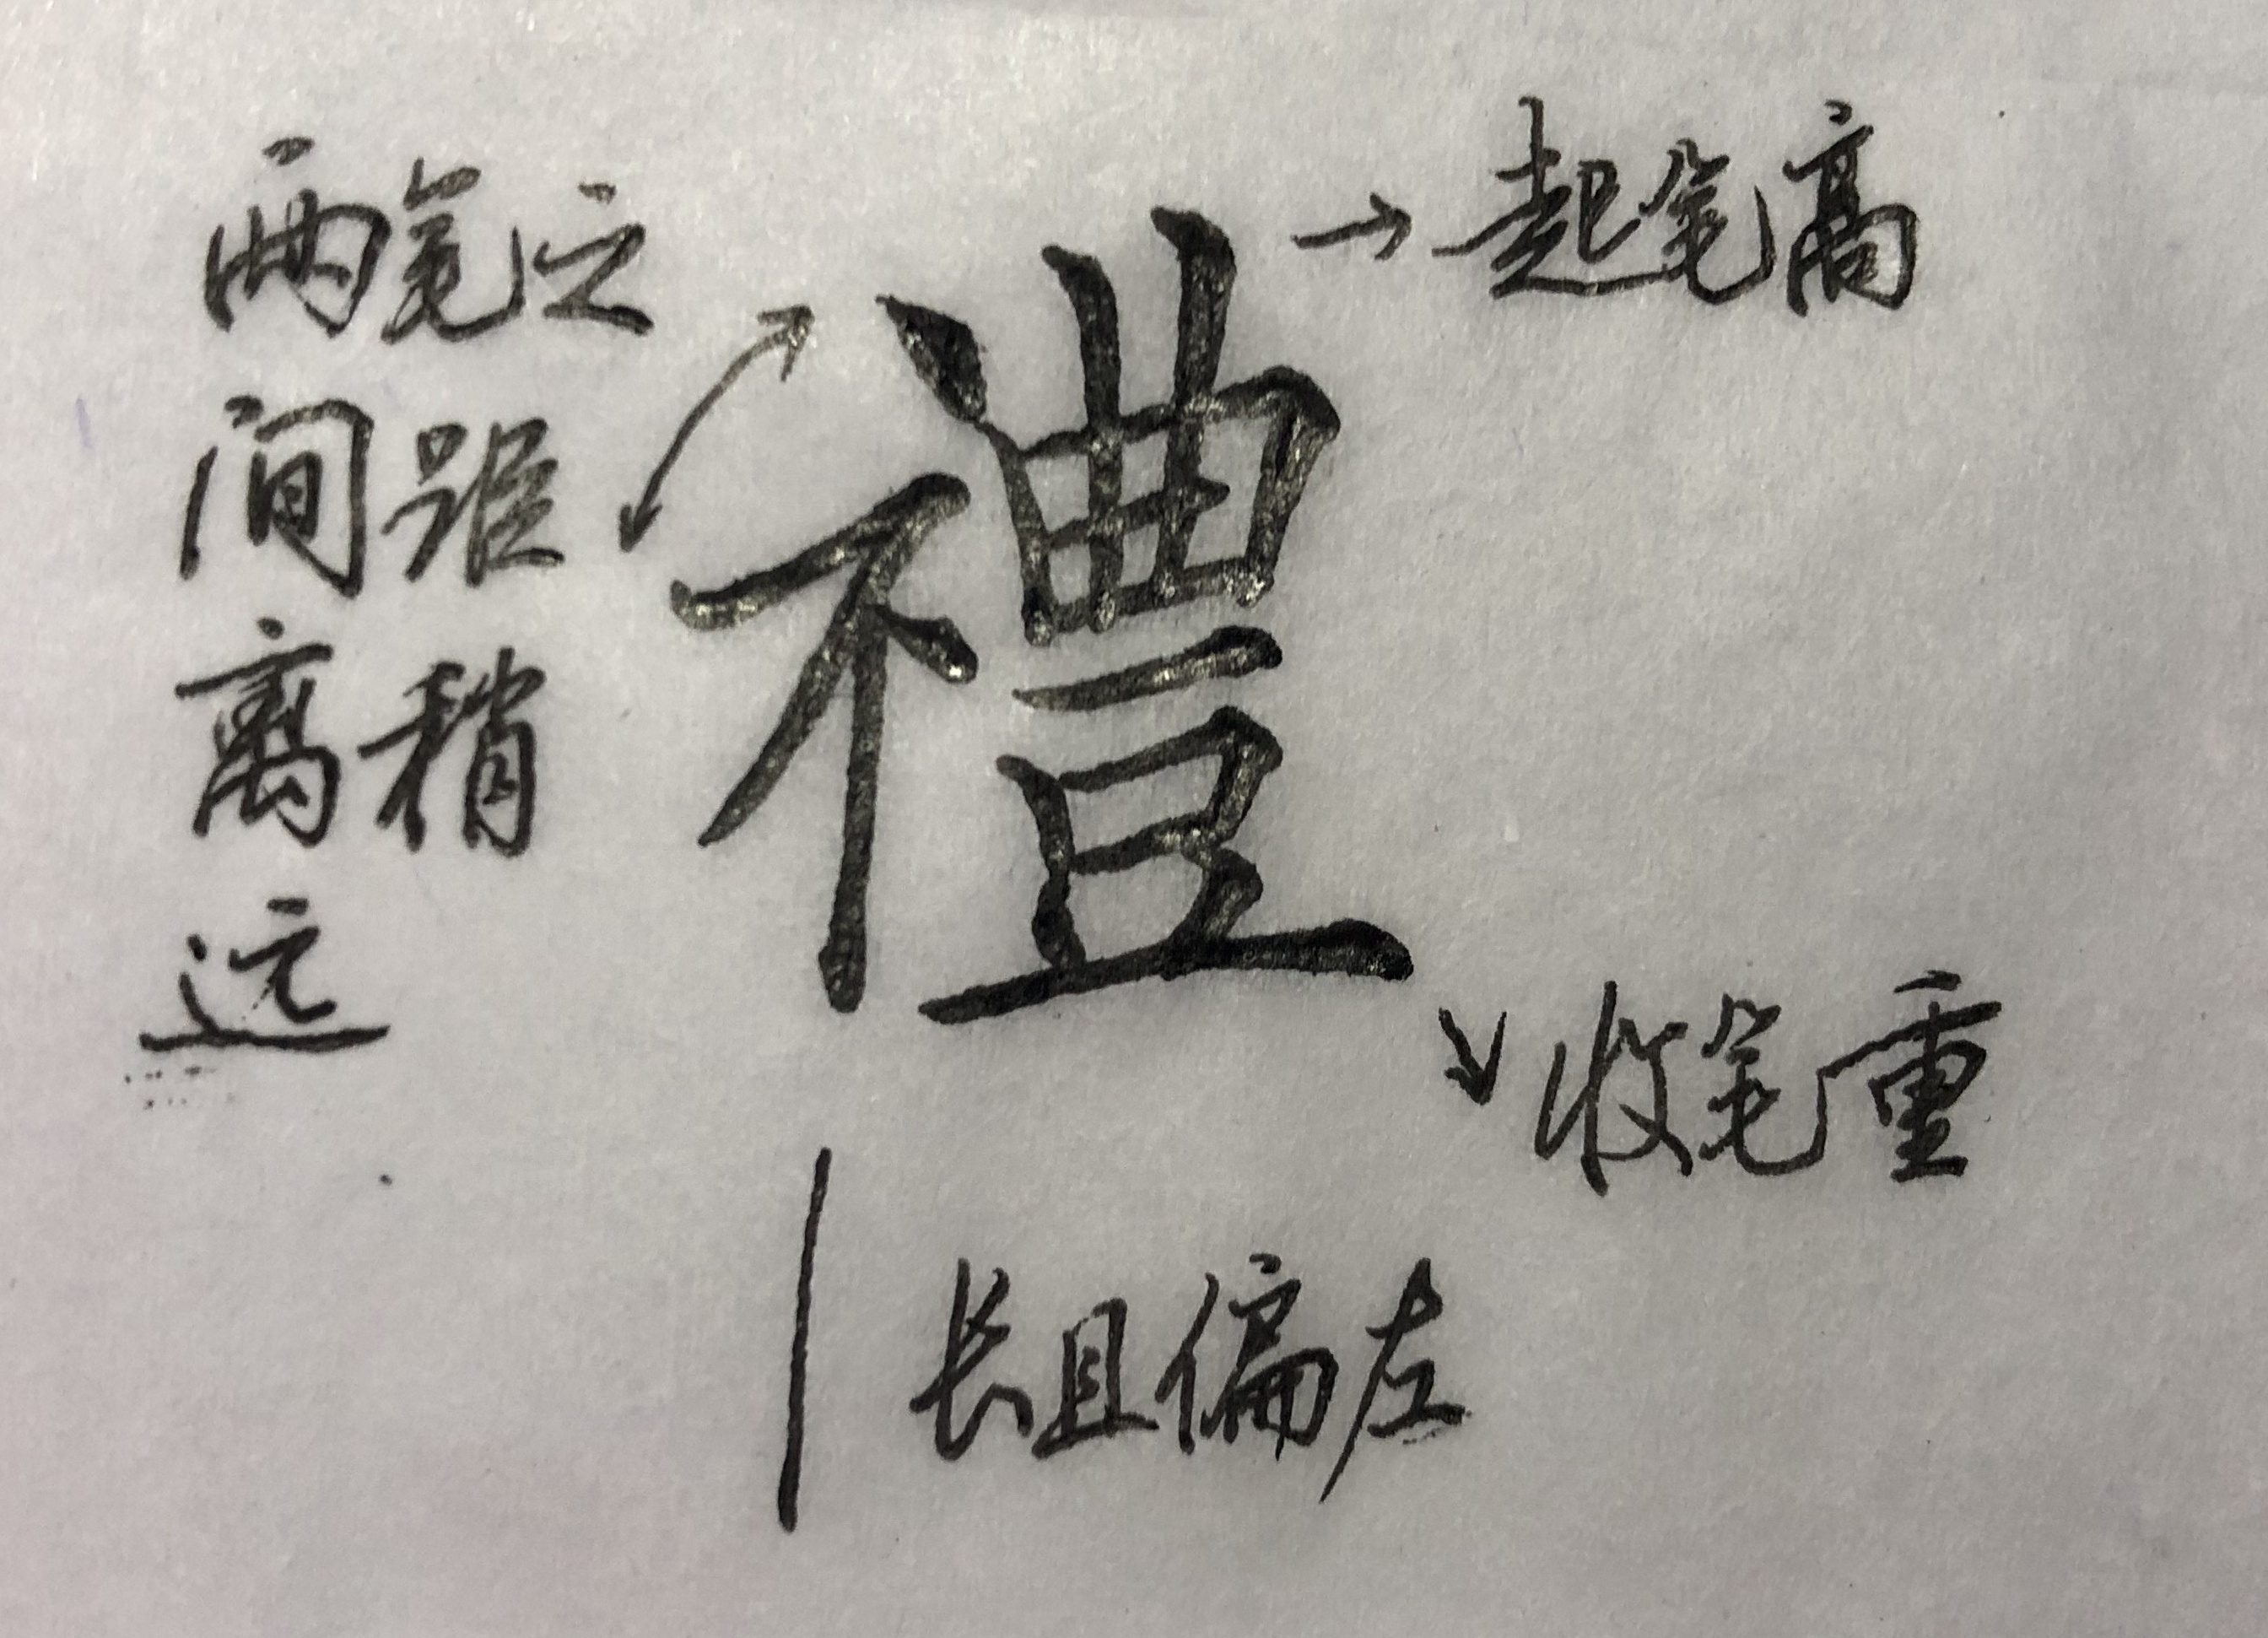 两笔之
间距
离稍
远
禮
起笔高
收笔重
长且偏左